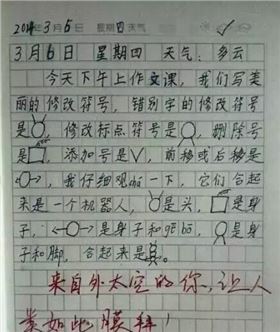 2014年3月6日 星期四 天气
3月6日 星期四 天气：多云
今天下午上作文课，我们写美
丽的修改符号，错别字的修改符号
是，修改标点符号是，删除号
是，添加号是∨，前移或后移是
，我仔细观 一下，它们合起
来是一个机器人，是头，是身
子，是身子和gēbo，是身
子和脚，合起来是。
来自外太空的你，让人
类如此膜拜！